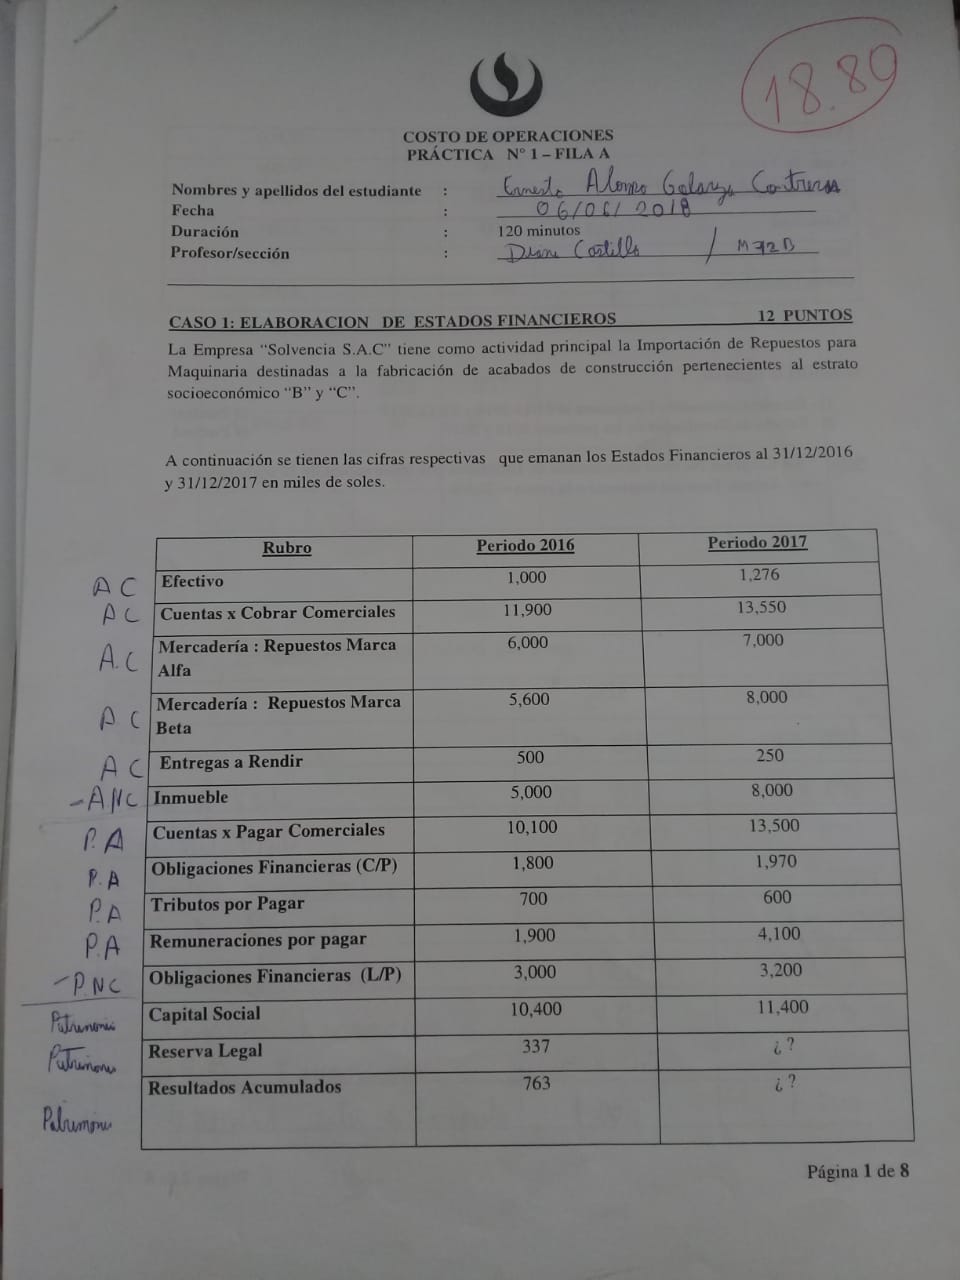 18.80
COSTO DE OPERACIONES
PRÁCTICA N° 1 – FILA A
Nombres y apellidos del estudiante : Ernesto Alonso Contreras
Fecha : 06/06/2018
Duración : 120 minutos
Profesor/sección : Castillo / M72B
CASO 1: ELABORACION DE ESTADOS FINANCIEROS 12 PUNTOS
La Empresa “Solvencia S.A.C” tiene como actividad principal la Importación de Repuestos para
Maquinaria destinadas a la fabricación de acabados de construcción pertenecientes al estrato
socioeconómico “B” y “C”.
A continuación se tienen las cifras respectivas que emanan los Estados Financieros al 31/12/2016
y 31/12/2017 en miles de soles.
Rubro Periodo 2016 Periodo 2017
AC Efectivo 1,000 1,276
AC Cuentas x Cobrar Comerciales 11,900 13,550
A.C Mercadería : Repuestos Marca 6,000 7,000
Alfa
AC Mercadería : Repuestos Marca 5,600 8,000
Beta
AC Entregas a Rendir 500 250
-ANC Inmueble 5,000 8,000
P.A Cuentas x Pagar Comerciales 10,100 13,500
P.A Obligaciones Financieras (C/P) 1,800 1,970
P.A Tributos por Pagar 700 600
P.A Remuneraciones por pagar 1,900 4,100
-P.NC Obligaciones Financieras (L/P) 3,000 3,200
Patrimonio Capital Social 10,400 11,400
Patrimonio Reserva Legal 337 ¿ ?
Patrimonio Resultados Acumulados 763 ¿ ?
Página 1 de 8